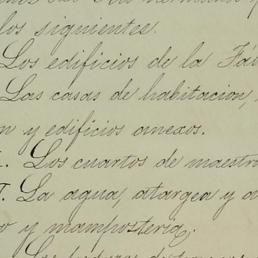 los siguientes.
Los edificios de la Fá
Las casas de habitacion,
n y edificios anexos.
Los cuartos de maestro
La agua, atargea y a
o y mamposteria.